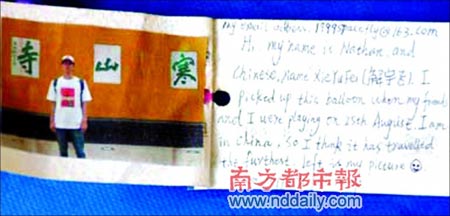 寺 山 寒
my email address. 1999spacefly@163.com
Hi, my name is Nathan. and
Chinese name XieYuFei (解宇飞). I
picked up this balloon when my friends
and I were playing on 25th August. I am
in China. So I think it has travelled
the furthest. left is my picture
南方都市報
www.nddaily.com